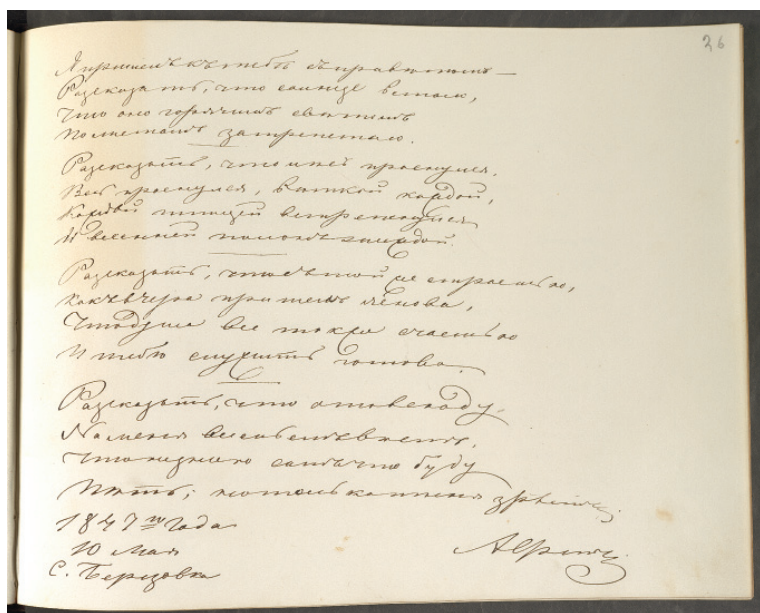 36
Я пришелъ къ тебѣ съ привѣтомъ —
Разсказать, что солнце встало,
Что оно горячимъ свѣтомъ
По листамъ затрепетало.
Разсказать, что лѣсъ проснулся,
Весь проснулся, вѣткой каждой,
Каждой птицей встрепенулся
И весенней полонъ жаждой.
Разсказать, что съ той же страстью,
Какъ вчера пришелъ я снова,
Что душа все такъ же счастью
И тебѣ служить готова.
Разсказать, что отовсюду
На меня весельемъ вѣетъ,
Что не знаю самъ что буду
Пѣть; но только пѣсня зрѣетъ.
1847го года
10 Мая
А Фетъ
С. Березовка